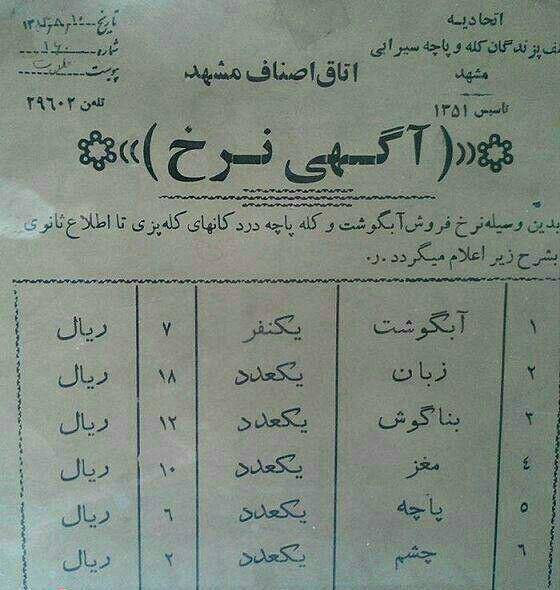 اتحادیه
پزندگان کله و پاچه سیرابی
مشهد
تاسیس ۱۳۵۱
اتاق اصناف مشهد
تاریخ
شماره ۱۶۰
پیوست
تلفن ۲۹۶۰۲
(آگهی نرخ)
بدین وسیله نرخ فروش آبگوشت و کله پاچه در دکانهای کله‌پزی تا اطلاع ثانوی
بشرح زیر اعلام میگردد.ر.
۱ آبگوشت یکنفر ۷ ریال
۲ زبان یکعدد ۱۸ ریال
۳ بناگوش یکعدد ۱۲ ریال
۴ مغز یکعدد ۱۰ ریال
۵ پاچه یکعدد ۶ ریال
۶ چشم یکعدد ۲ ریال